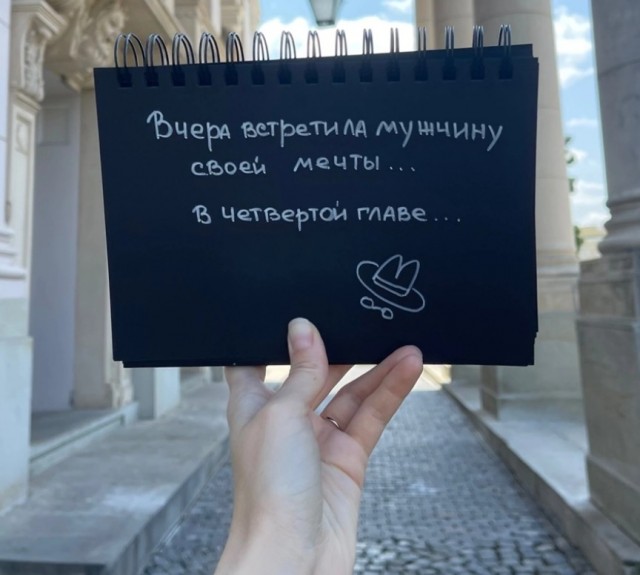 Вчера встретила мужчину
своей мечты...
В четвертой главе...